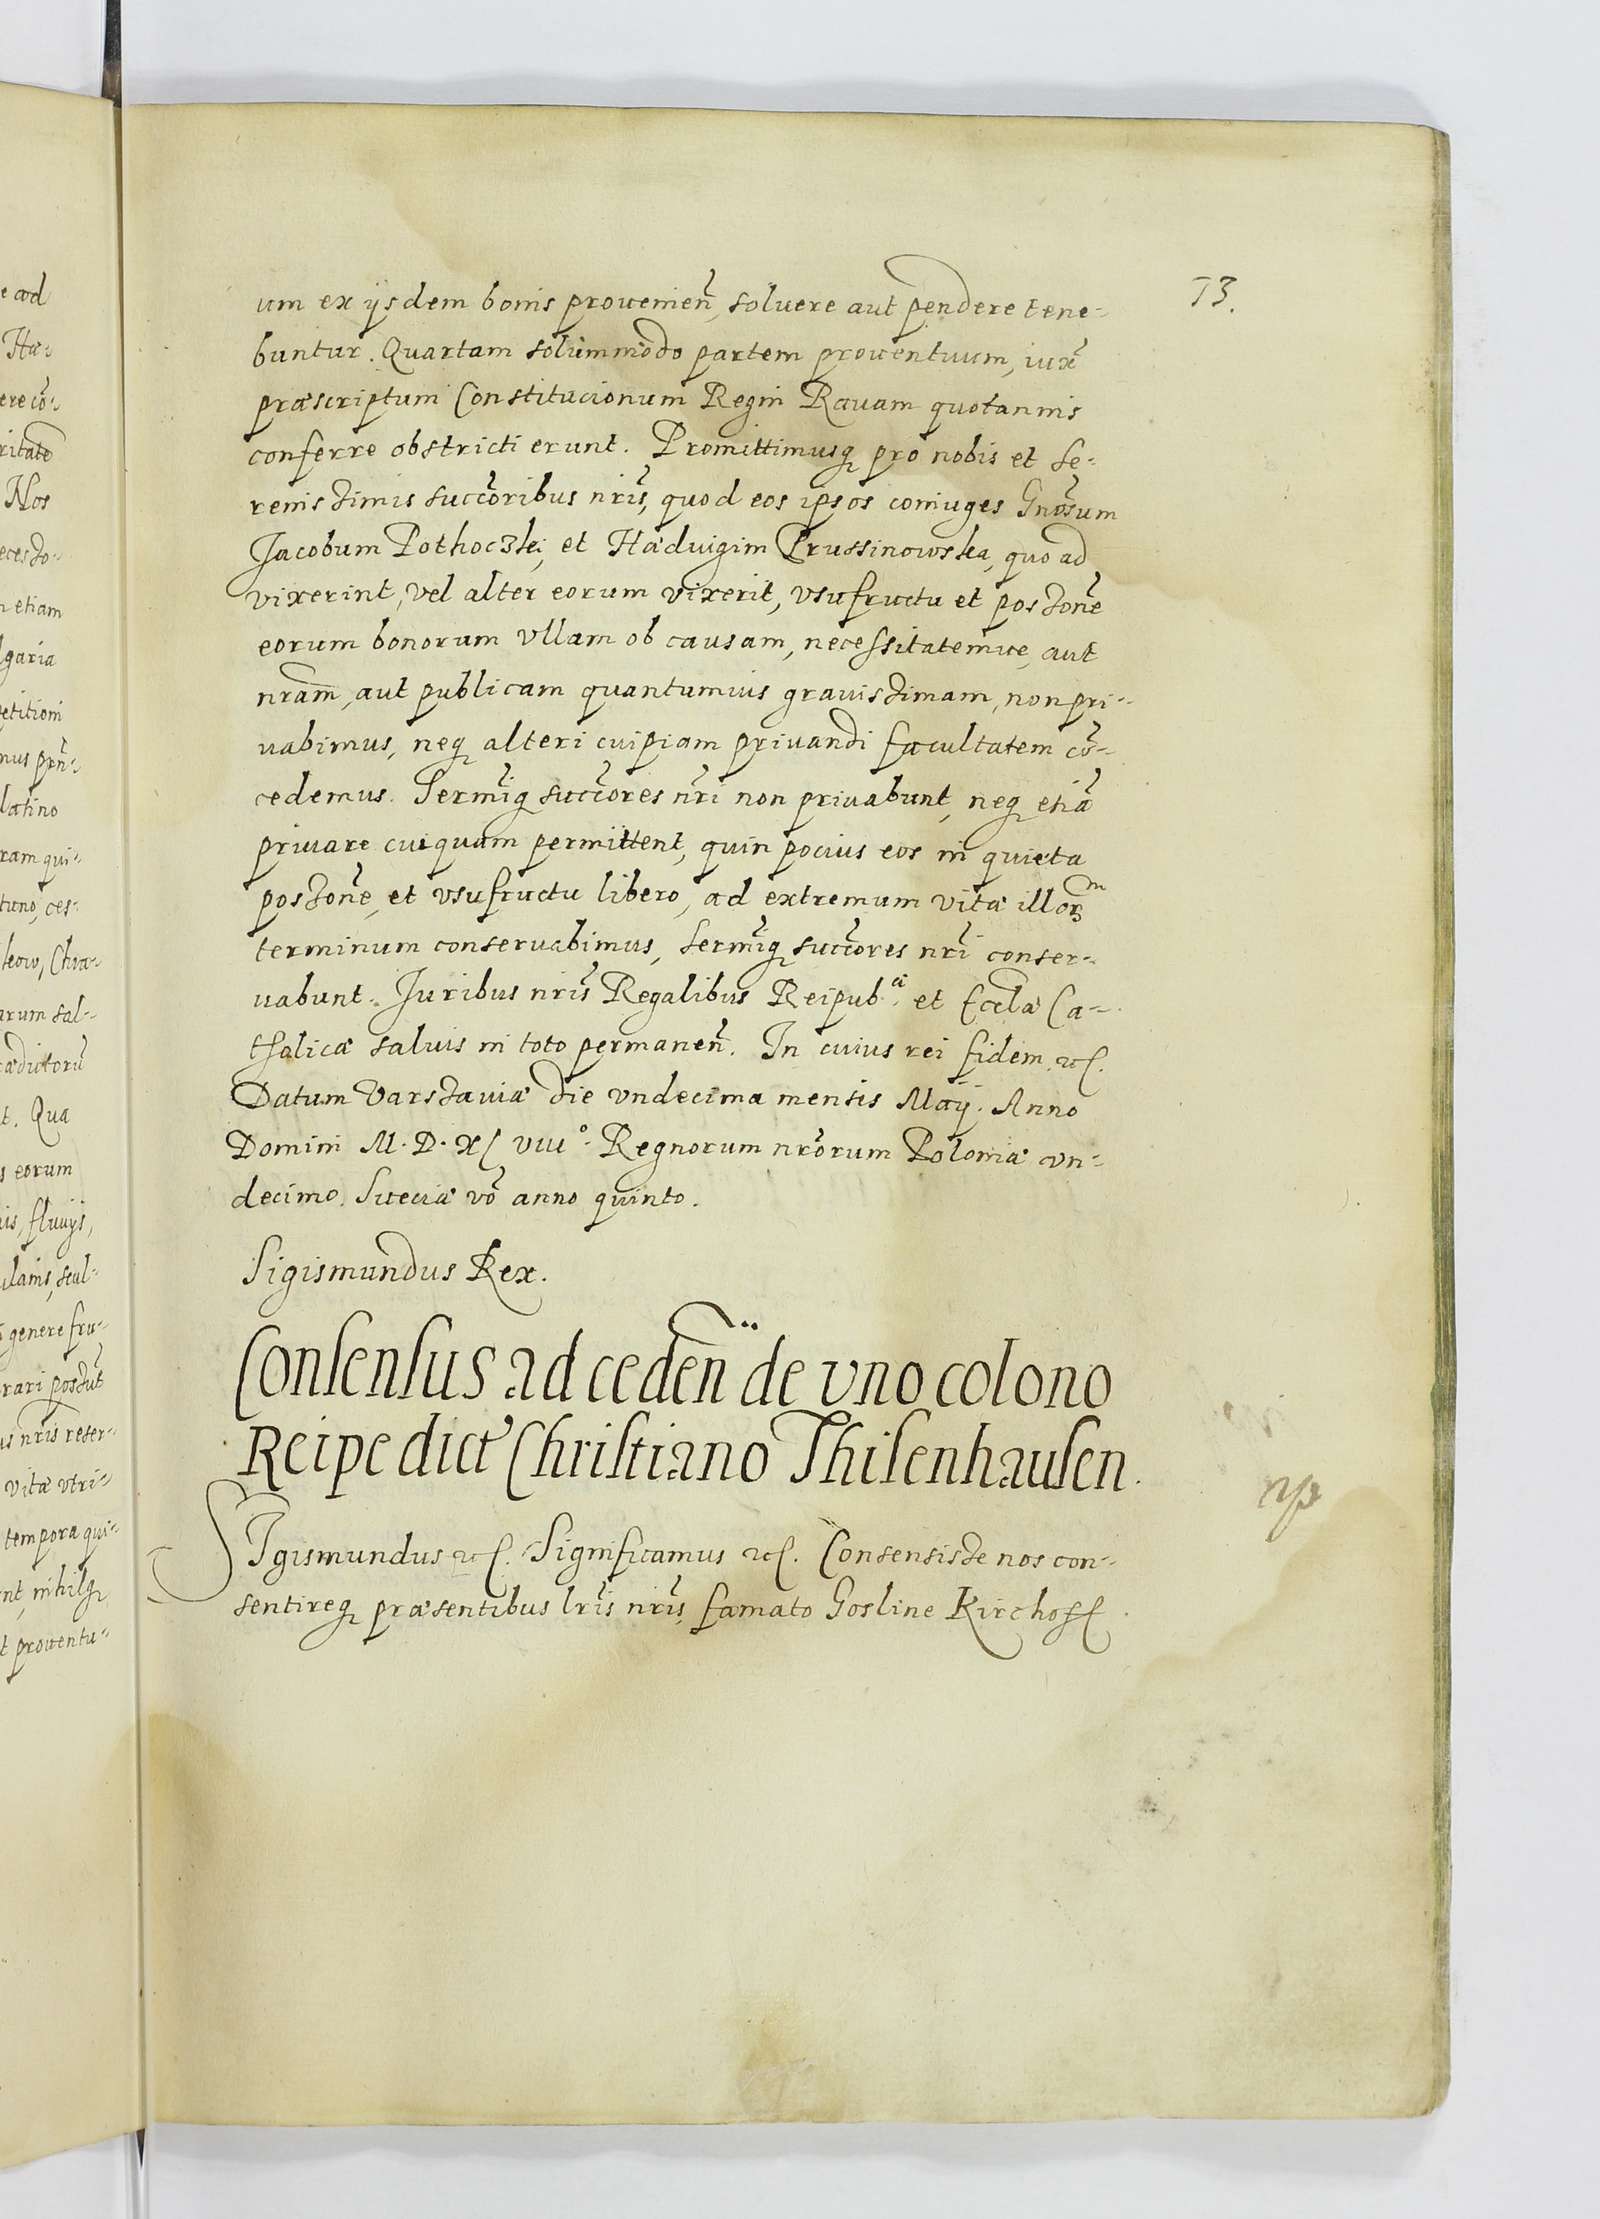 73.
um ex ijsdem bonis prouenien̄, soluere aut pendere tene-
buntur. Quartam solummodo partem prouentuum, iux̄
præscriptum Constitucionum Regni Rauam quotannis
conferre obstricti erunt. Promittimusq pro nobis et se-
renissimis succōribus nr̄is, quod eos ipsos coniuges Gnōsum
Jacobum Pothoczki, et Hæduigim Prussinowska, quo ad
vixerint, vel alter eorum vixerit, vsufructu et possōne
eorum bonorum vllam ob causam, necessitatemue, aut
nrām, aut publicam quantumuis grauissimam, non pri-
uabimus, neq alteri cuipiam priuandi facultatem cō-
cedemus. Sermīq succōres nr̄i non priuabunt, neq etiā
priuare cuiquam permittent, quin pocius eos in quieta
possōne, et vsufructu libero, ad extremum vitæ illorm
terminum conseruabimus, sermīq succōres nr̄i conser-
uabunt. Juribus nr̄is Regalibus Reipub.æ et Eccl̄æ Ca-
tholicæ saluis in toto permanen̄. In cuius rei fidem etc.
Datum Varssauiæ die vndecima mensis Maij. Anno
Domini M.D.XCVIIIo. Regnorum nrōrum Poloniæ vn-
decimo. Sueciæ vō anno quinto.
Sigismundus Rex.
Consensus ad ceden̄ de vno colono
Reipe dict Christiano Thisenhausen.
SIgismundus etc. Significamus etc. Consensisse nos con-
sentireq præsentibus lr̄is nr̄is famato Gosline Kirchoff